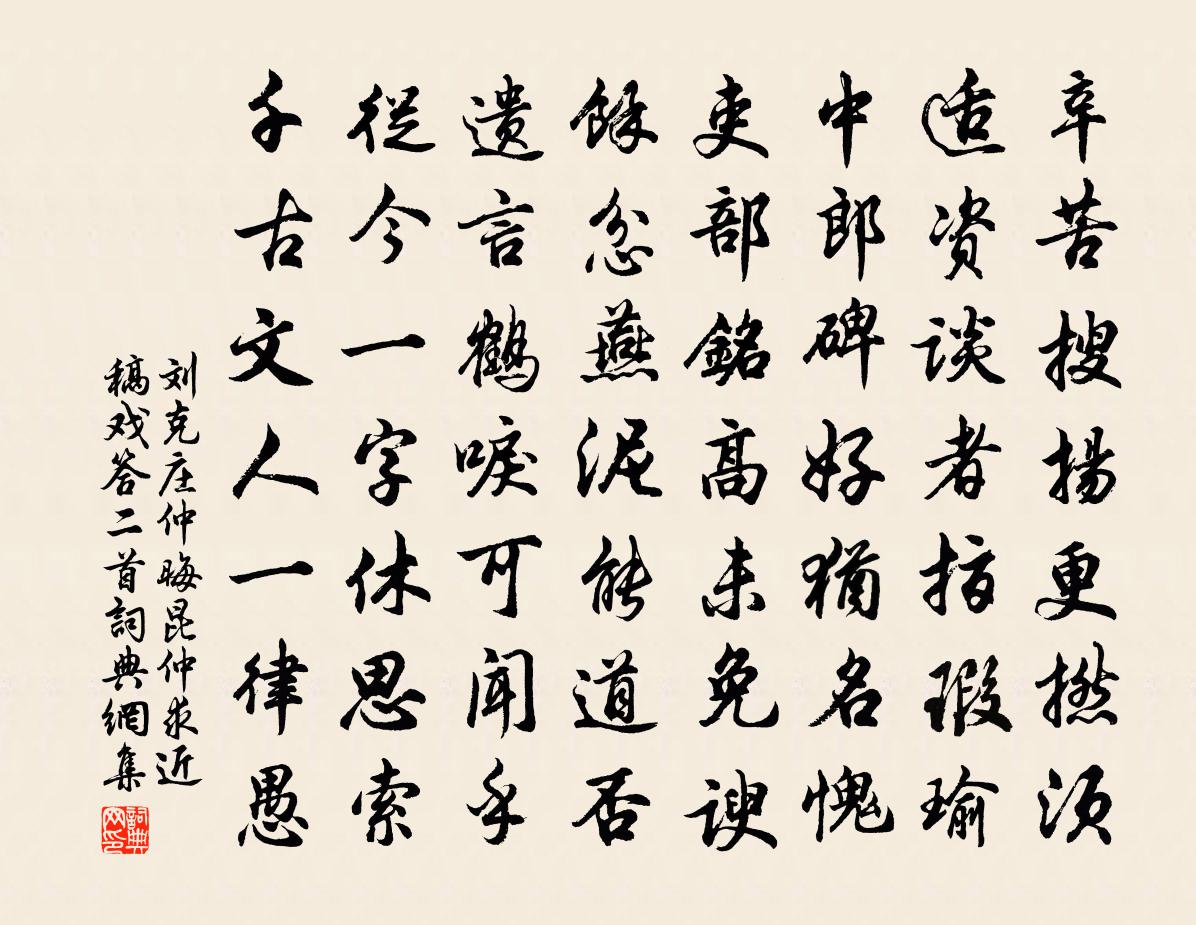 辛苦搜揚更撚须
适资谈者指瑕瑜
中郎碑好猶名愧
吏部銘高未免諛
餘忿燕泥能道否
遺言鶴唳可聞乎
從今一字休思索
千古文人一律愚
刘克庄仲晦昆仲求近
稿戏答二首詞典網集
詞典网印